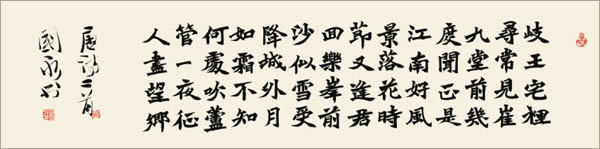 岐王宅裡
尋常見崔
九堂前幾
度聞正是
江南好風
景落花時
節又逢君
回樂峯前
沙似雪受
降城外月
如霜不知
何處吹蘆
管一夜征
人盡望鄉
唐詩二首